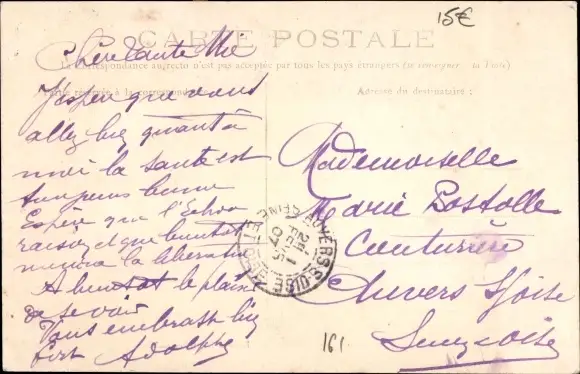 15€
CARTE POSTALE
La Correspondance au recto n'est pas acceptée par tous les pays étrangers (se renseigner à la Poste)
Partie réservée à la correspondance
Adresse du destinataire :
Chère tante
J'espère que vous
allez bien quant à
moi la santé est
toujours bonne
Espère que
raison et que bientôt
la libération
A bientôt le plaisir
de se voir
Vous embrasse bien
fort Adolphe
Mademoiselle
Marie Postolle
Couturière
Auvers s/Oise
Seine et Oise
AUVERS-S-OISE
SEINE-ET-OISE
07
161